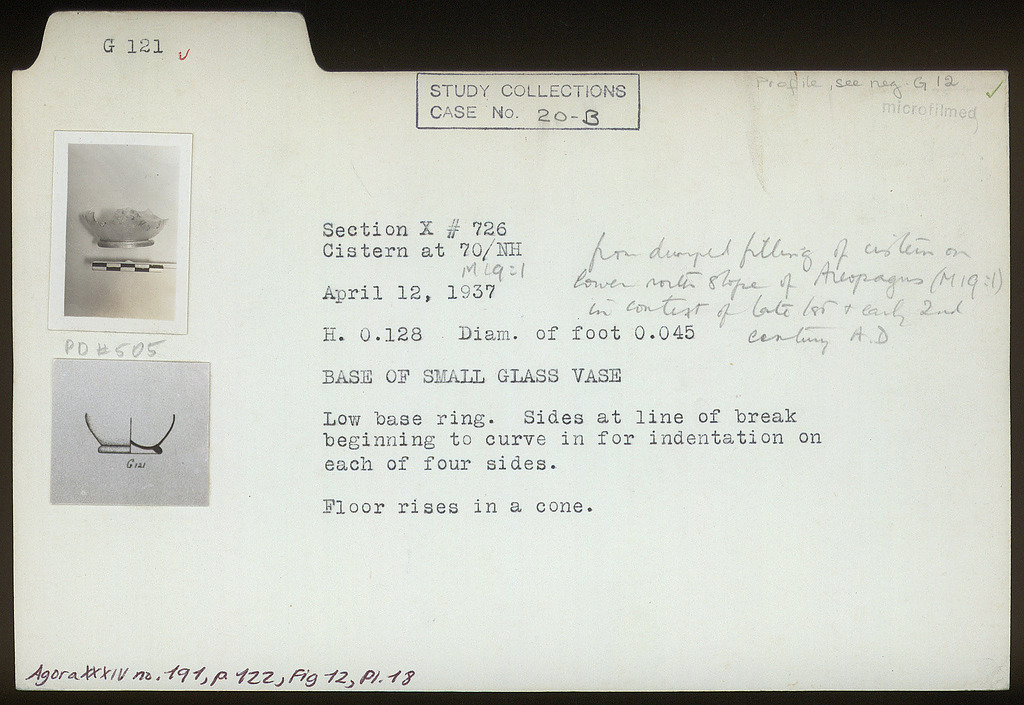 G 121
STUDY COLLECTIONS
CASE No. 20-B
Profile, see neg. G 12
microfilmed
Section X # 726
Cistern at 70/NH
M19:1
April 12, 1937
from dumped filling of cistern on
lower north slope of Areopagus (M19:1)
in context of late 1st + early 2nd
century A.D
H. 0.128 Diam. of foot 0.045
PD #505
G121
BASE OF SMALL GLASS VASE
Low base ring. Sides at line of break
beginning to curve in for indentation on
each of four sides.
Floor rises in a cone.
Agora XXXIV no. 191, p. 122, Fig 12, Pl. 18